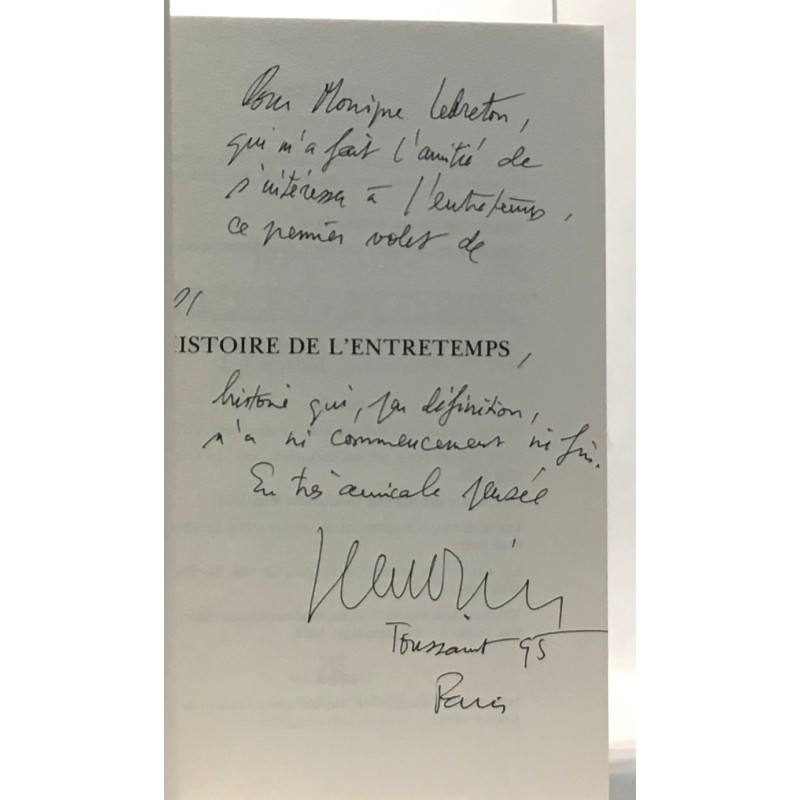 Pour Monique Lebreton,
qui m'a fait l'amitié de
s'intéresser à l'entretemps,
ce premier volet de
ISTOIRE DE L'ENTRETEMPS,
histoire qui, par définition,
n'a ni commencement ni fin.
En très amicale pensée
Toussaint 95
Paris